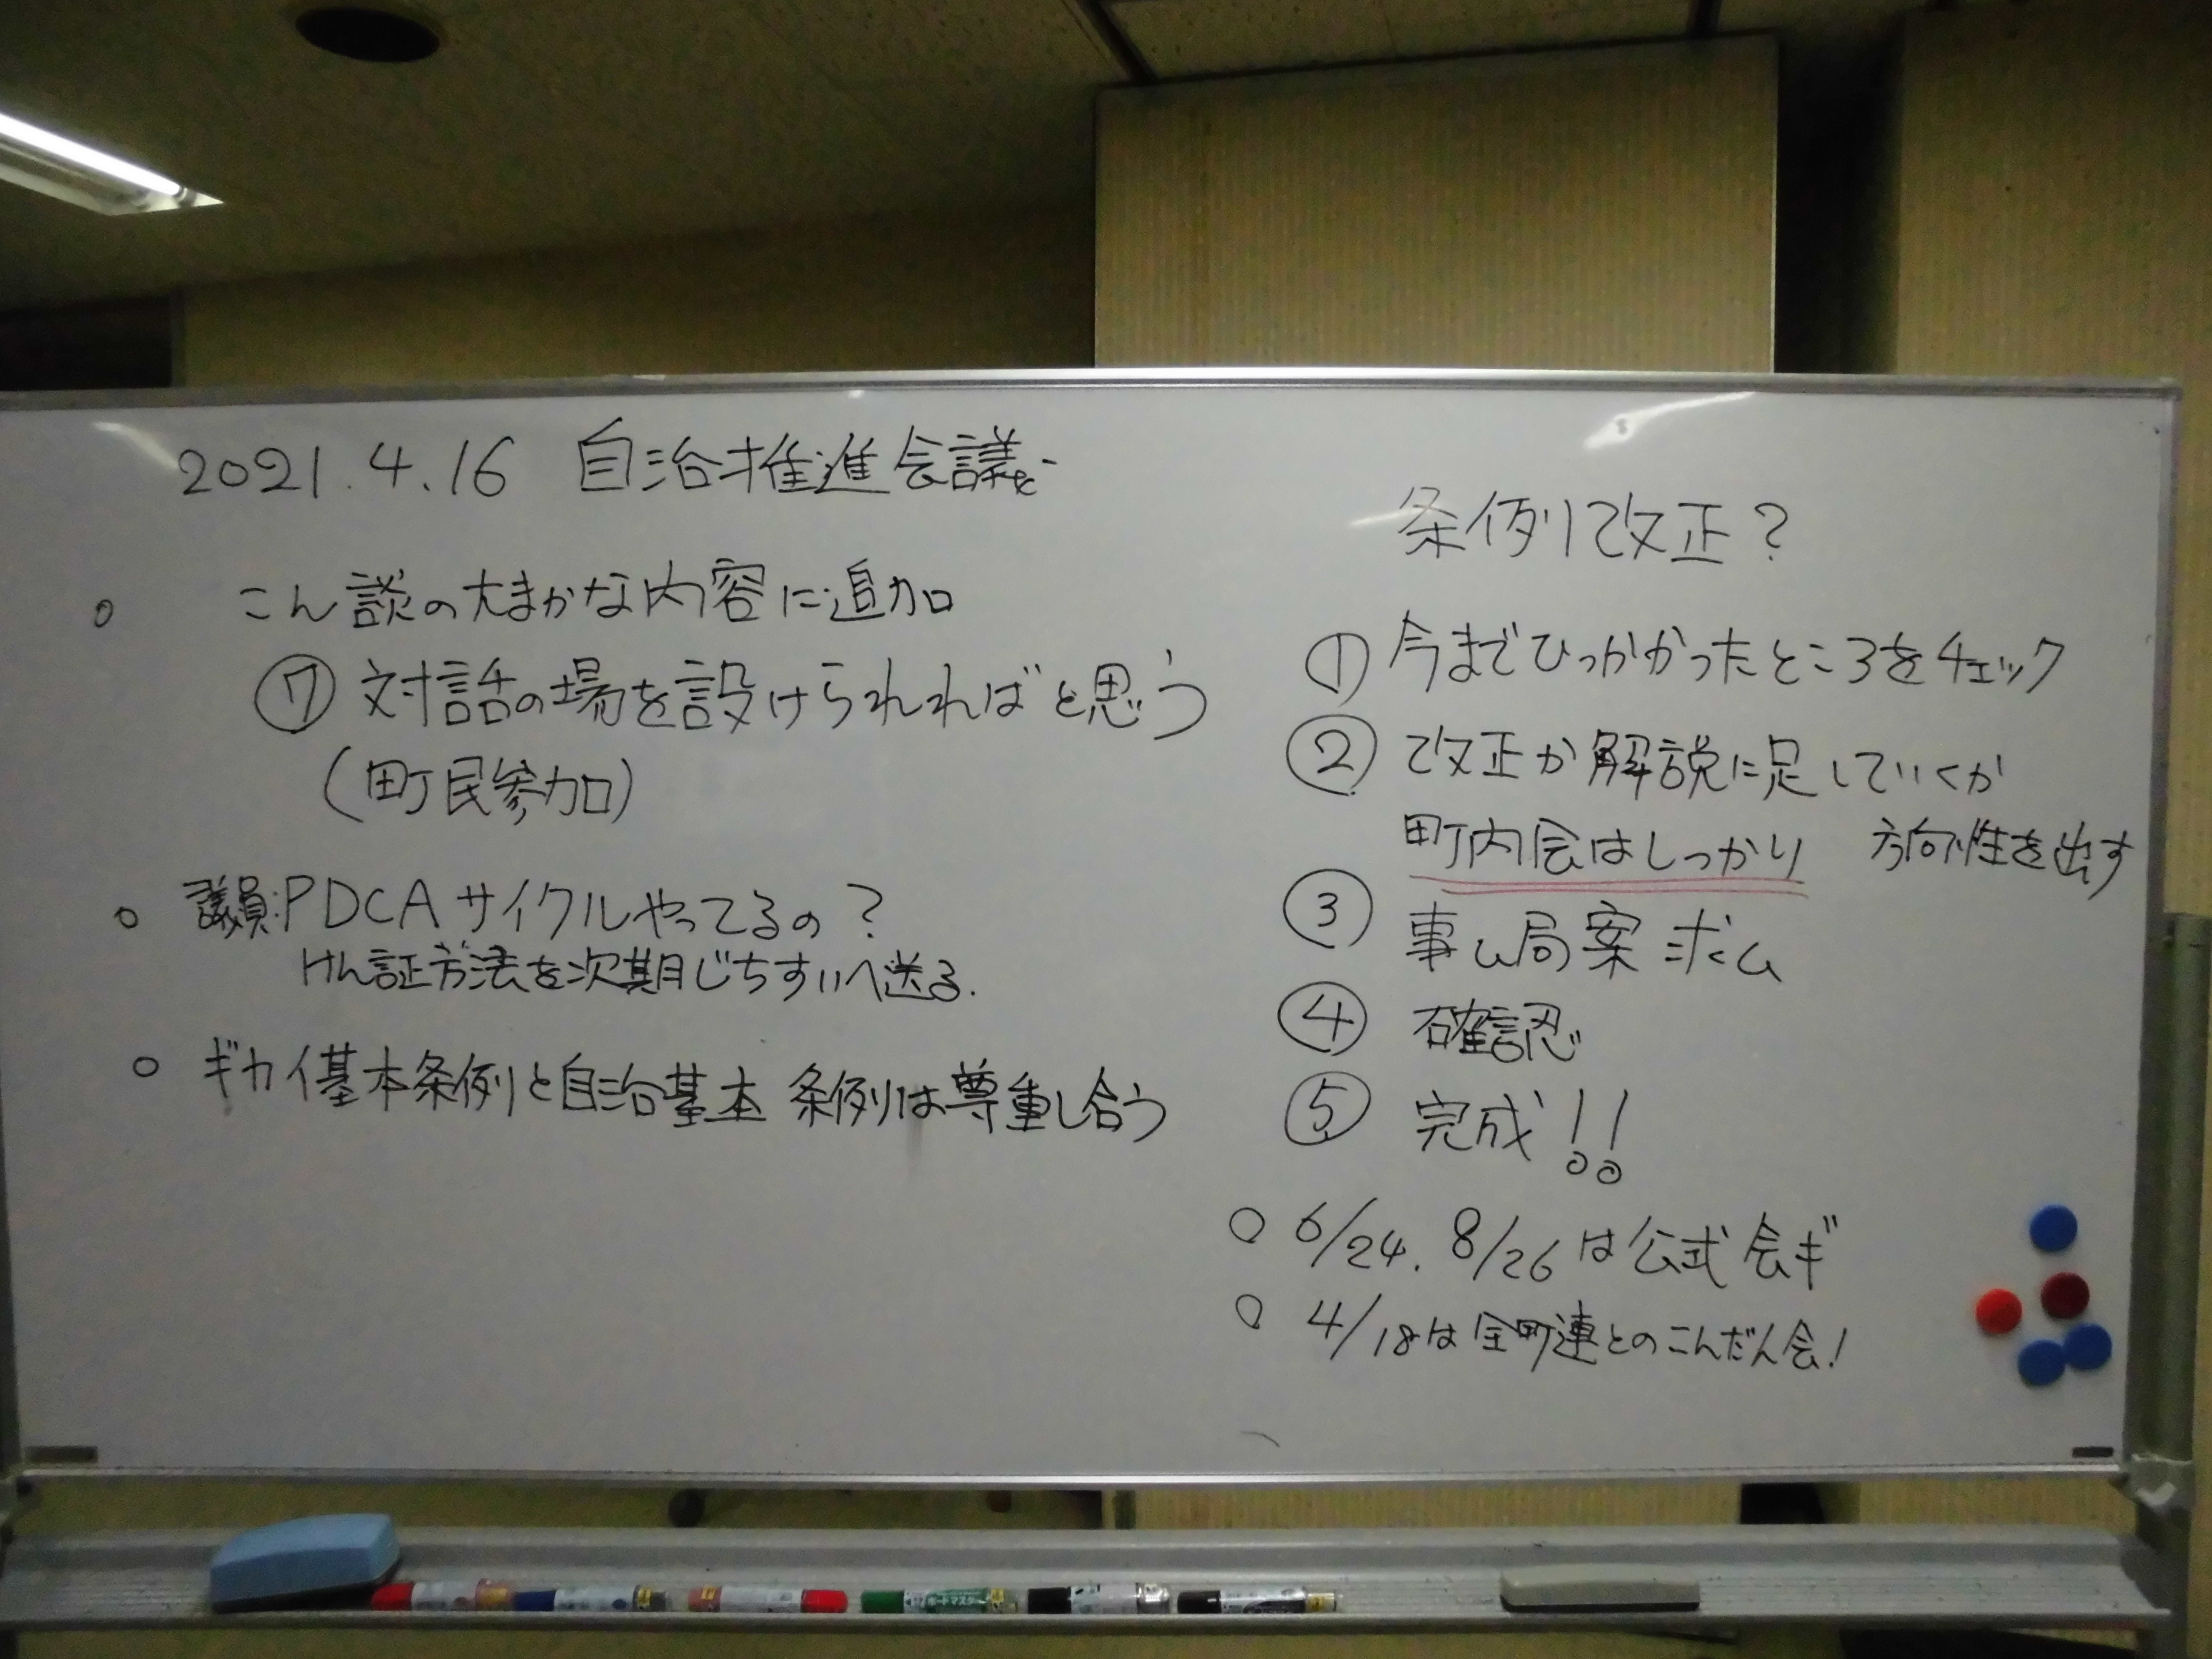 2021.4.16 自治推進会議
○ こん談の大まかな内容に追加
⑦ 対話の場を設けられればと思う
(町民参加)
○ 議員:PDCAサイクルやってるの?
けん証方法を次期じちすいへ送る.
○ ギカイ基本条例と自治基本条例は尊重し合う
条例改正?
① 今までひっかかったところをチェック
② 改正か解説に足していくか
町内会はしっかり 方向性を出す
③ 事ム局案求ム
④ 確認
⑤ 完成!!
○ 6/24. 8/26は公式会ギ
○ 4/18は全町連とのこんだん会!
ボードマスター